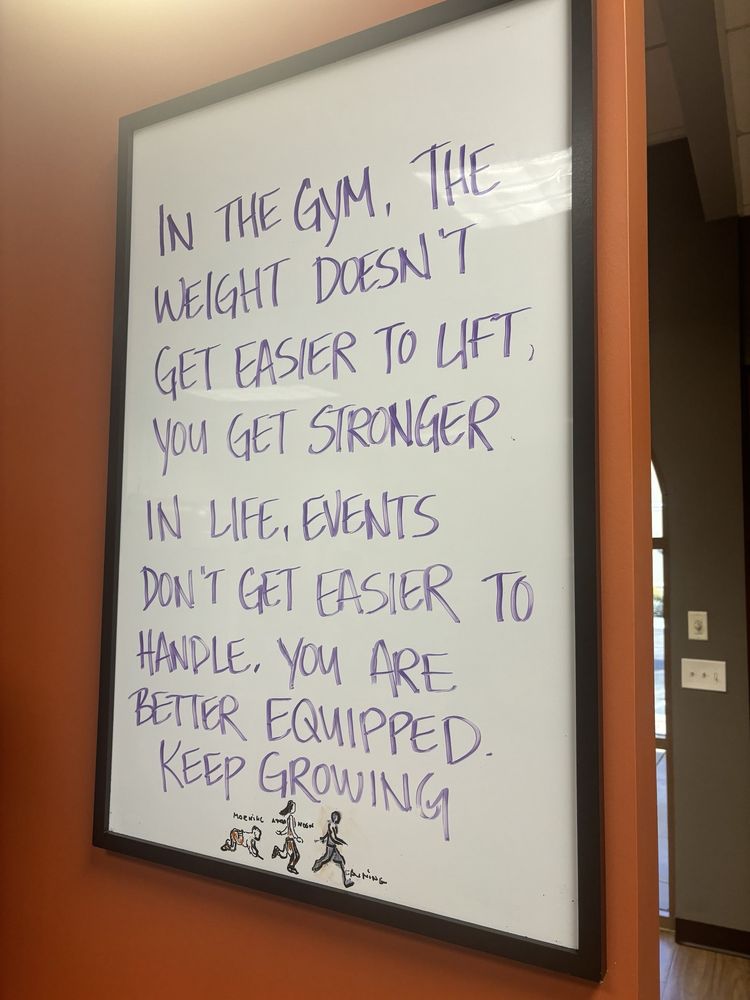 IN THE GYM, THE
WEIGHT DOESN'T
GET EASIER TO LIFT,
YOU GET STRONGER
IN LIFE, EVENTS
DON'T GET EASIER TO
HANDLE. YOU ARE
BETTER EQUIPPED.
KEEP GROWING
MORNING